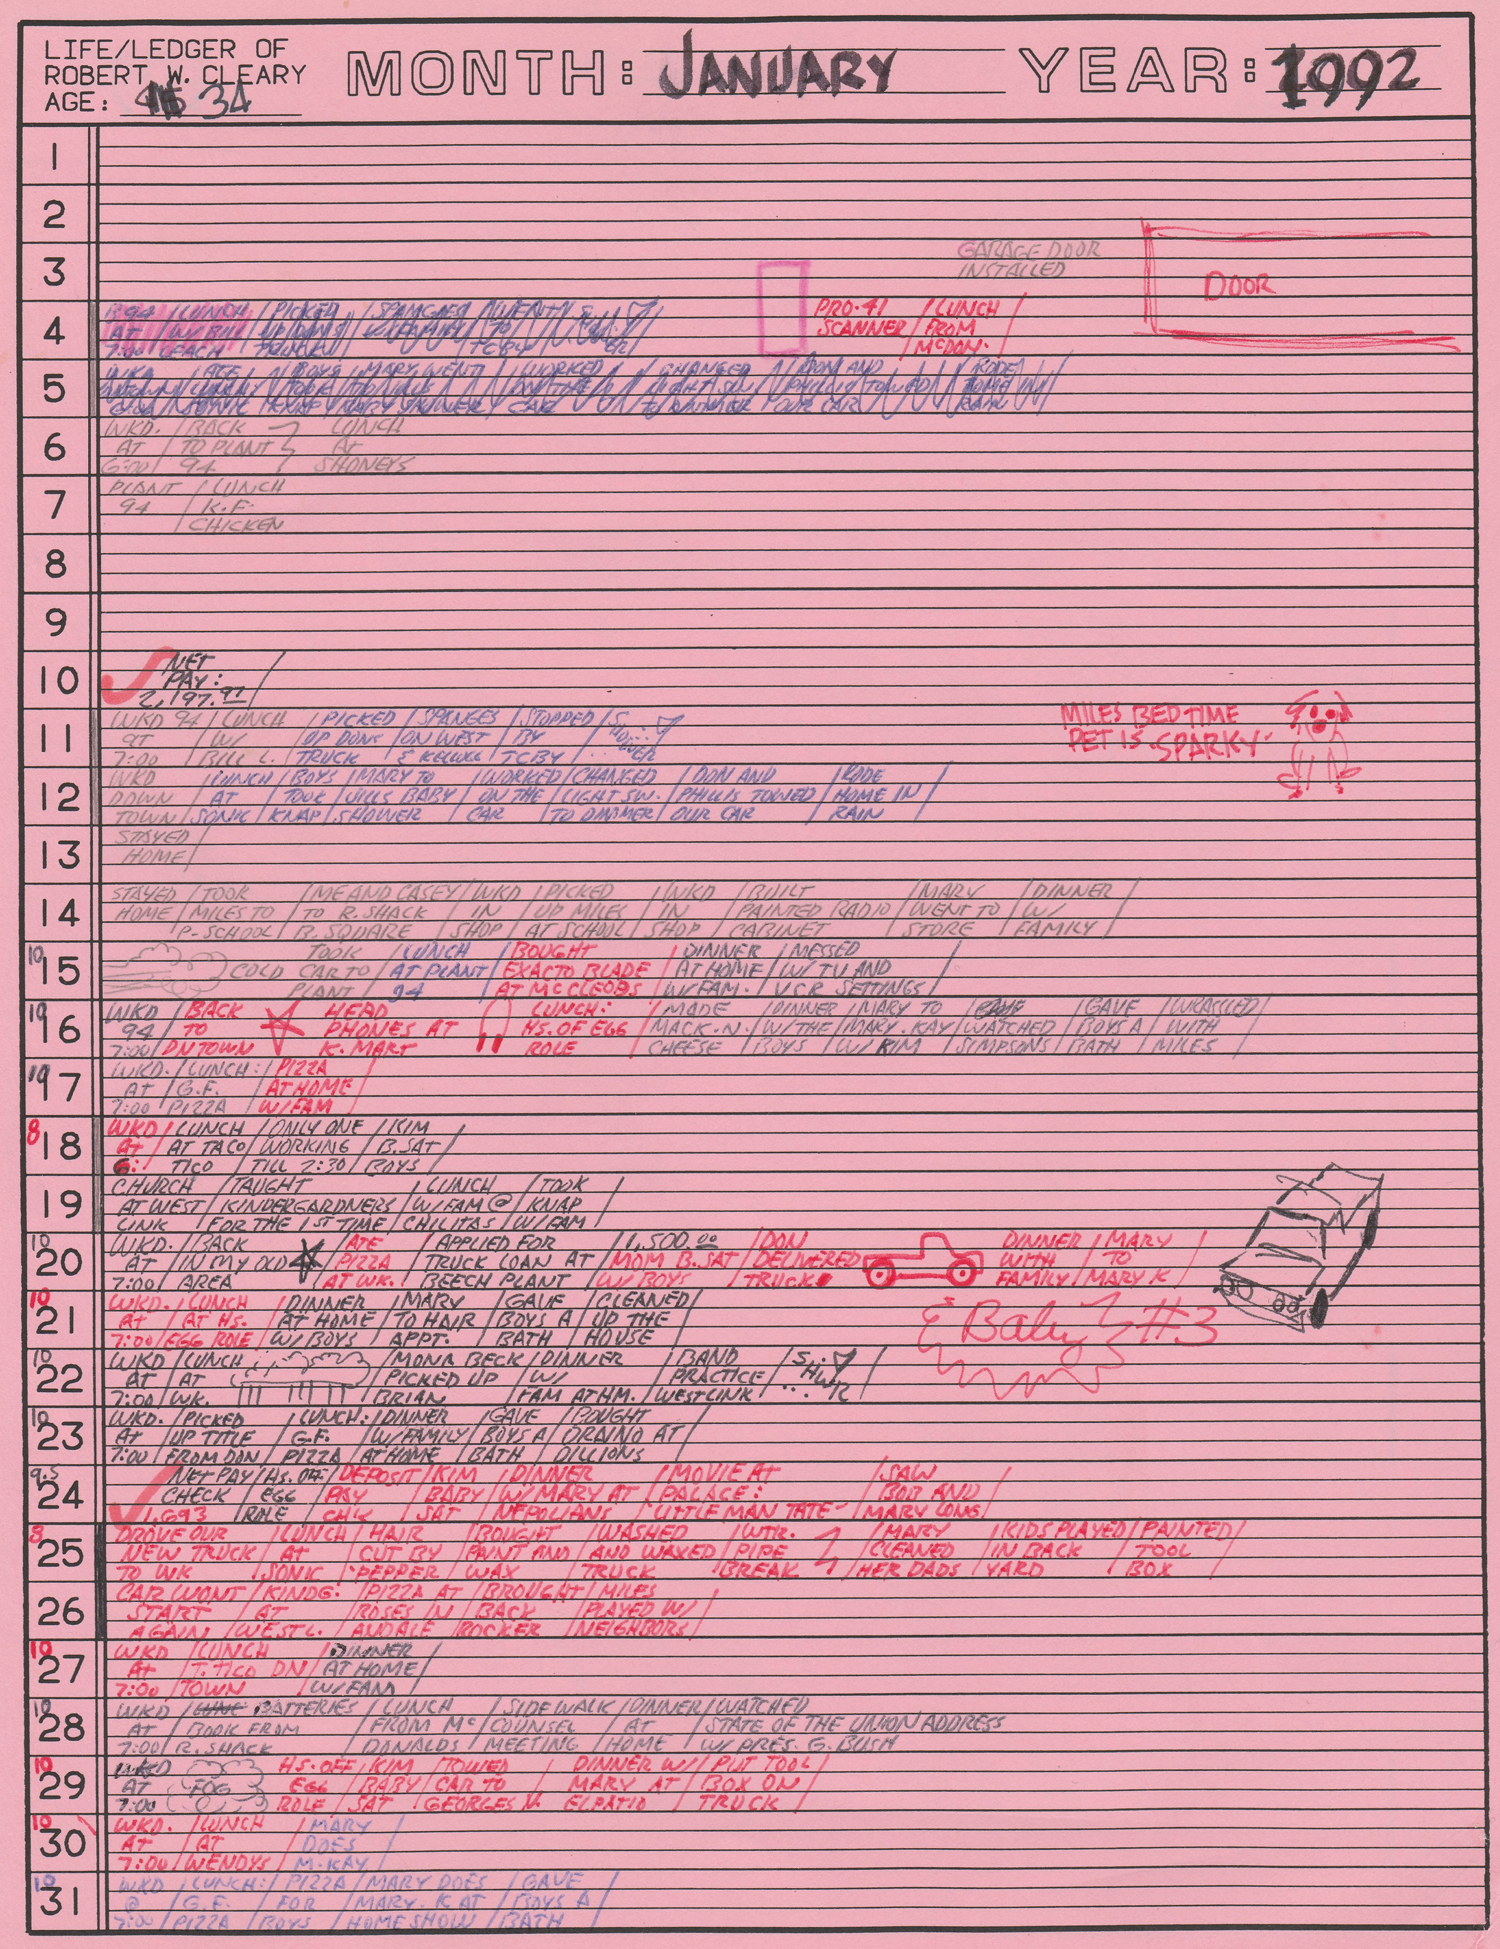 LIFE/LEDGER OF
ROBERT W. CLEARY
AGE: 34
MONTH: JANUARY YEAR: 1992
1
2
3 GARAGE DOOR
INSTALLED
DOOR
4 B94 / LUNCH / PICKED / SPANGLES / WENT /
AT / W/ BILL / UP DONS / W/ FAMILY / TO /
7:00 / LEACH / TRUCK / TCBY /
PRO-41 / LUNCH
SCANNER / FROM
McDON.
5 WKD / / BOYS / MARY WENT / WORKED / CHANGED / DON AND / RODE
DOWN / LUNCH / TOOK / TO JILLS / ON THE / LIGHT SW. / PHYLLIS TOWED / HOME IN
/ SONIC / KNAP / BABY SHOWER / CAR / TO DIMMER / OUR CAR / RAIN
6 WKD. / BACK LUNCH
AT / TO PLANT AT
6:00 / 94 SHONEYS
7 PLANT / LUNCH
94 / K.F.
CHICKEN
8
9
10 NET
PAY:
2,197.97
11 WKD 94 / LUNCH / PICKED / SPANGES / STOPPED / SHOWER
AT / W/ / UP DONS / ON WEST / BY
7:00 / BILL L. / TRUCK / & KELLOGG / TCBY
MILES BEDTIME
PET IS "SPARKY"
12 WKD / LUNCH / BOYS / MARY TO / WORKED / CHANGED / DON AND / RODE
DOWN / AT / TOOK / JILLS BABY / ON THE / LIGHT SW. / PHILLIS TOWED / HOME IN
TOWN / SONIC / KNAP / SHOWER / CAR / TO DIMMER / OUR CAR / RAIN
13 STAYED
HOME
14 STAYED / TOOK / ME AND CASEY / WKD / PICKED / WKD / BUILT / MARY / DINNER
HOME / MILES TO / TO R. SHACK / IN / UP MILES / IN / PAINTED RADIO / WENT TO / W/
P-SCHOOL / B. SQUARE / SHOP / AT SCHOOL / SHOP / CABINET / STORE / FAMILY
10
15 TOOK / LUNCH / BOUGHT / DINNER / MESSED
COLD CAR TO / AT PLANT / EXACTO BLADE / AT HOME / W/ TV AND
PLANT / 94 / AT McCLEODS / W/ FAM. / VCR SETTINGS
10
16 WKD / BACK HEAD LUNCH: / MADE / DINNER / MARY TO / / GAVE / WRASSLED
94 / TO PHONES AT HS. OF EGG / MACK. N. / W/ THE / MARY. KAY / WATCHED / BOYS A / WITH
7:00 / DNTOWN K. MART ROLE / CHEESE / BOYS / W/ KIM / SIMPSONS / BATH / MILES
10
17 WKD. / LUNCH: / PIZZA
AT / G.F. / AT HOME
7:00 / PIZZA / W/ FAM
8
18 WKD / LUNCH / ONLY ONE / KIM
AT / AT TACO / WORKING / B. SAT
6: / TICO / TILL 2:30 / BOYS
19 CHURCH / TAUGHT / LUNCH / TOOK
AT WEST / KINDERGARDNERS / W/ FAM @ / KNAP
LINK / FOR THE 1ST TIME / CHILITAS / W/ FAM
10
20 WKD. / BACK / ATE / APPLIED FOR / 1,500.00 / DON DINNER / MARY
AT / IN MY OLD / PIZZA / TRUCK LOAN AT / MOM B. SAT / DELIVERED WITH / TO
7:00 / AREA / AT WK. / BEECH PLANT / W/ BOYS / TRUCK FAMILY / MARY K
10
21 WKD. / LUNCH / DINNER / MARY / GAVE / CLEANED
AT / AT HS. / AT HOME / TO HAIR / BOYS A / UP THE
7:00 / EGG ROLE / W/ BOYS / APPT. / BATH / HOUSE
Baby #3
10
22 WKD / LUNCH / MONA BECK / DINNER / BAND / SHWR
AT / AT / PICKED UP / W/ / PRACTICE
7:00 / WK. / BRIAN / FAM AT HM. / WESTLINK
10
23 WKD. / PICKED / LUNCH: / DINNER / GAVE / BOUGHT
AT / UP TITLE / G.F. / W/ FAMILY / BOYS A / DRAINO AT
7:00 / FROM DON / PIZZA / AT HOME / BATH / DILLIONS
9.5
24 NET PAY / HS. OF / DEPOSIT / KIM / DINNER / MOVIE AT / SAW
CHECK / EGG / PAY / BABY / W/ MARY AT / PALACE: / BOB AND
1,693 / ROLE / CHK / SAT / NEPOLIANS / "LITTLE MAN TATE" / MARY LONG
8
25 DROVE OUR / LUNCH / HAIR / BOUGHT / WASHED / WTR. / MARY / KIDS PLAYED / PAINTED
NEW TRUCK / AT / CUT BY / PAINT AND / AND WAXED / PIPE / CLEANED / IN BACK / TOOL
TO WK / SONIC / "PEPPER" / WAX / TRUCK / BREAK / HER DADS / YARD / BOX
26 CAR WONT / KINDG: / PIZZA AT / BROUGHT / MILES
START / AT / ROSES IN / BACK / PLAYED W/
AGAIN / WEST L. / ANDALE / ROCKER / NEIGHBORS
10
27 WKD / LUNCH / DINNER
AT / T. TICO DN / AT HOME
7:00 / TOWN / W/ FAM
10
28 WKD / BATTERIES / LUNCH / SIDEWALK / DINNER / WATCHED
AT / BOOK FROM / FROM Mc / COUNSEL / AT / STATE OF THE UNION ADDRESS
7:00 / R. SHACK / DONALDS / MEETING / HOME / W/ PRES. G. BUSH
10
29 WKD HS. OFF / KIM / TOWED / DINNER W/ / PUT TOOL
AT FOG EGG / BABY / CAR TO / MARY AT / BOX ON
7:00 ROLE / SAT / GEORGES / ELPATIO / TRUCK
10
30 WKD. / LUNCH / MARY
AT / AT / DOES
7:00 / WENDYS / M-KAY
10
31 WKD / LUNCH: / PIZZA / MARY DOES / GAVE
@ / G.F. / FOR / MARY. K AT / BOYS A
7:00 / PIZZA / BOYS / HOME SHOW / BATH